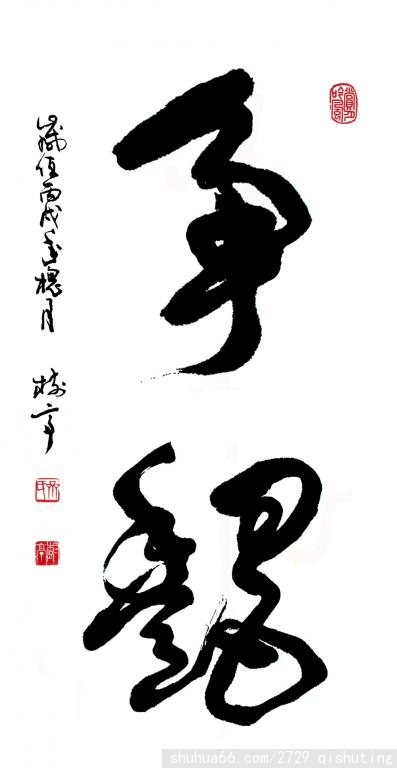 争艷
歲值丙戌年槐月
树亭
shuhua66.com/2729 qishuting